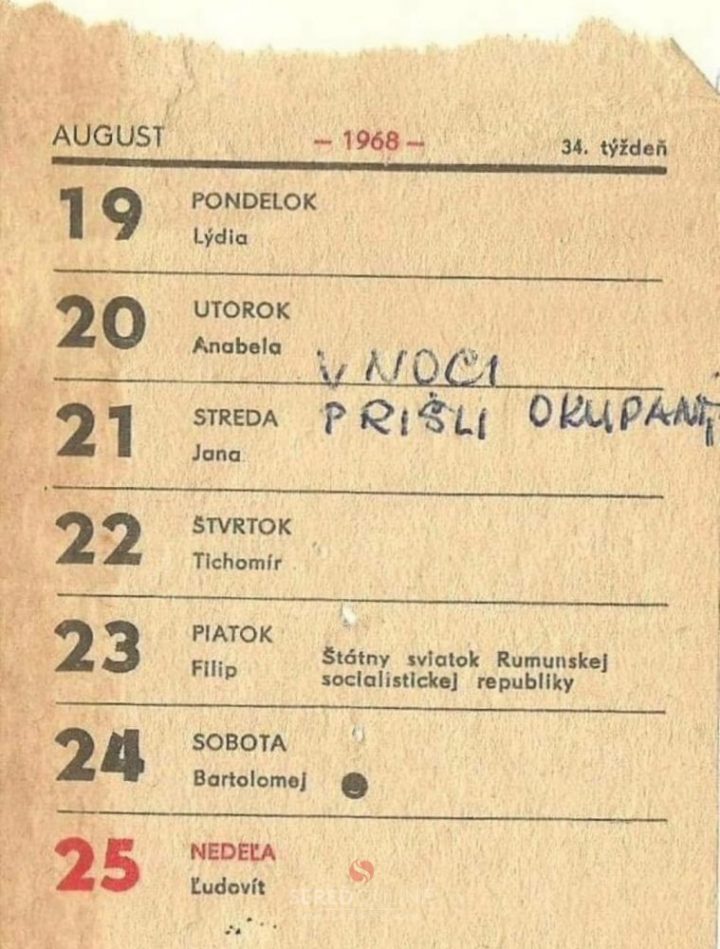 AUGUST – 1968 – 34. týždeň
19 PONDELOK
Lýdia
20 UTOROK
Anabela
V NOCI
21 STREDA PRIŠLI OKUPANTI
Jana
22 ŠTVRTOK
Tichomír
23 PIATOK
Filip
Štátny sviatok Rumunskej
socialistickej republiky
24 SOBOTA
Bartolomej
25 NEDEĽA
Ľudovít
SEREDONLINE